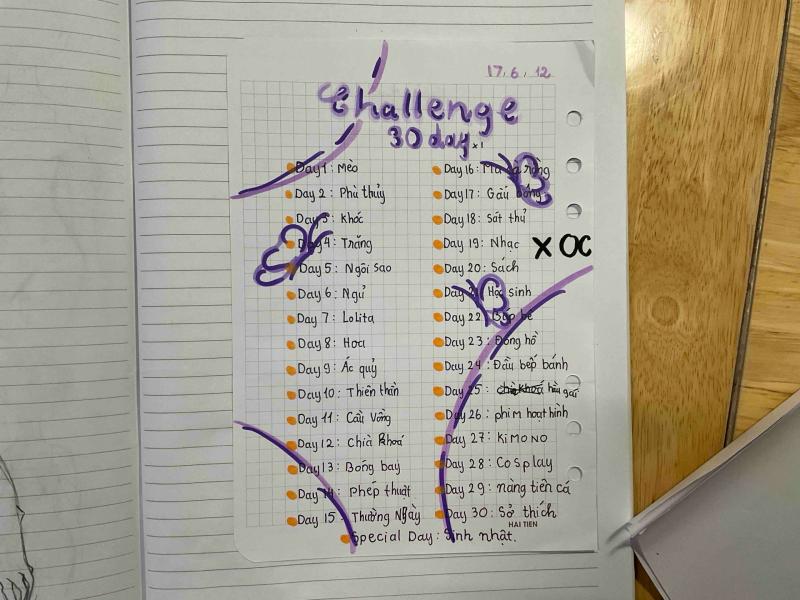 17. 6. 12
Challenge
30 day
x1
Day 1: Mèo
Day 2: Phù thủy
Day 3: Khóc
Day 4: Trăng
Day 5: Ngôi sao
Day 6: Ngủ
Day 7: Lolita
Day 8: Hoa
Day 9: Ác quỷ
Day 10: Thiên thần
Day 11: Cầu vồng
Day 12: Chìa khoá
Day 13: Bóng bay
Day 14: Phép thuật
Day 15: Thường Ngày
Day 16: Ma cà rồng
Day 17: Gấu bông
Day 18: Sát thủ
Day 19: Nhạc
Day 20: Sách
Day 21: Học sinh
Day 22: Búp bê
Day 23: Đồng hồ
Day 24: Đầu bếp bánh
Day 25: hầu gái
Day 26: phim hoạt hình
Day 27: KiMONO
Day 28: Cosplay
Day 29: nàng tiên cá
Day 30: Sở thích
HAI TIEN
Special Day: Sinh nhật.
X OC